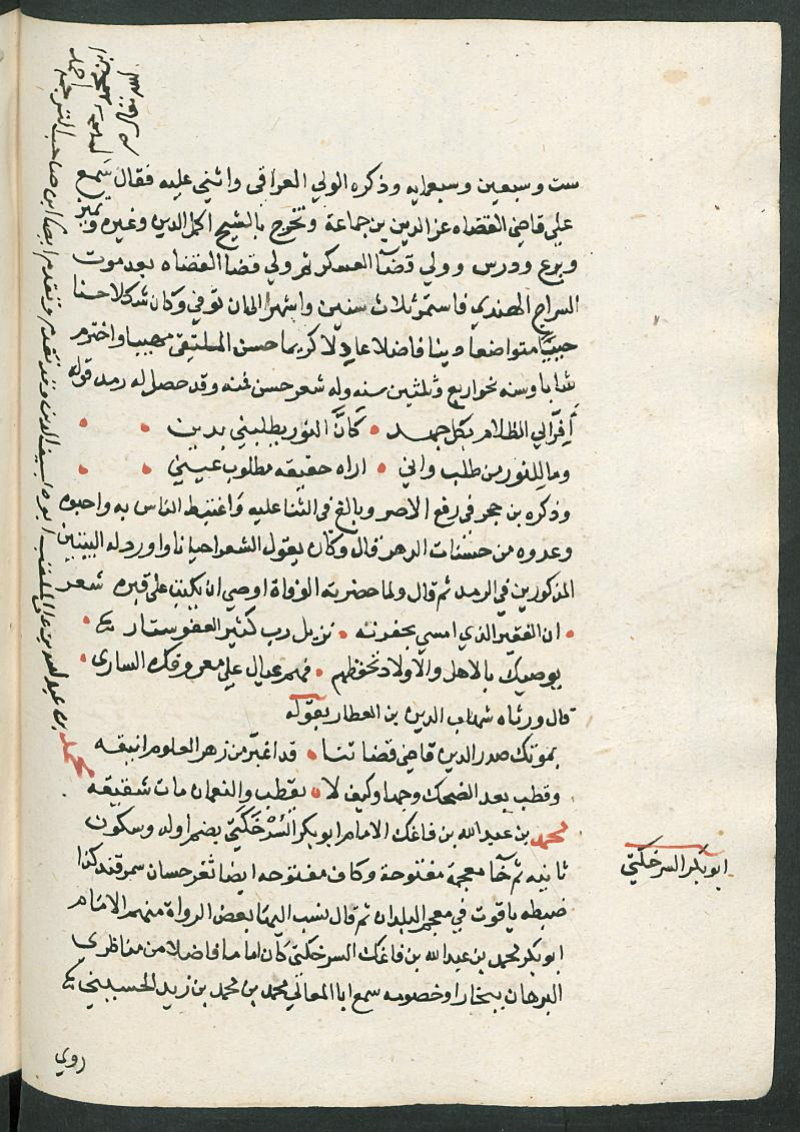 ست وسبعين وسبعمايه وذكره الولي العراقي واثني عليه فقال سمع
علي قاضي القضاه عز الدين بن جماعة وتخرج بالشيخ اكمل الدين وغيره وتميز
وبرع ودرس وولي قضآ العسكر ثم ولي قضا القضاه بعد موت
السراج الهندي فاستمر ثلاث سنين واشهرا الي ان توفي وكان شكلا حسنا
حييا متواضعا دينا فاضلا عادلا كريما حسن الملتقي مهيبا واخترم
شابا وسنه نحو اربع وثلثين سنه وله شعر حسن فمنه وقد حصل له رمد قوله
أفر الي الظلام بكل جهد • كأن النور يطلبني بدين
وما للنور من طلب واني • اراه حقيقه مطلوب عيني
وذكره بن حجر في رفع الاصر وبالغ في الثنا عليه واغتبط الناس به واحبوه
وعدوه من حسنات الدهر قال وكان يقول الشعر احيانا واورد له البيتين
المذكورين في الرمد ثم قال ولما حضرته الوفاة اوصي ان يكتب علي قبره شعر
• ان الفقير الذي امسي بحفرته • نزيل رب كثير العفو ستار
يوصيك بالاهل والاولاد تحفظهم • فهم عيال علي معروفك الساري
قال ورثاه شهاب الدين بن العطار بقوله
بموتك صدر الدين قاضي قضاتنا • قد اغبر من زهر العلوم انيقه
وقطب بعد الضحك وجدا وكيف لا • يقطب والنعمان مات شقيقه
محمد بن عبد الله بن فاعك الامام ابو بكر السُرْخَكَتي بضم اوله وسكون
ثانيه ثم خا معجمة مفتوحة وكاف مفتوحه ايضا ثغر حسان سمرقند كذا
ضبطه ياقوت في معجم البلدان ثم قال نسب اليها بعض الرواة منهم الامام
ابو بكر محمد بن عبد الله بن فاعك السرخكتي كان اماما فاضلا من مناظري
البرهان ببخارا وخصومه سمع ابا المعالي محمد بن محمد بن زيد الحسيني
روي
ابو بكر السرخكتي
محمد بن عبد الله بن علي الملقب ابوه سيف الدين وقد تقدم وتقدم ايضا ابن صاحب الترجمه احمد